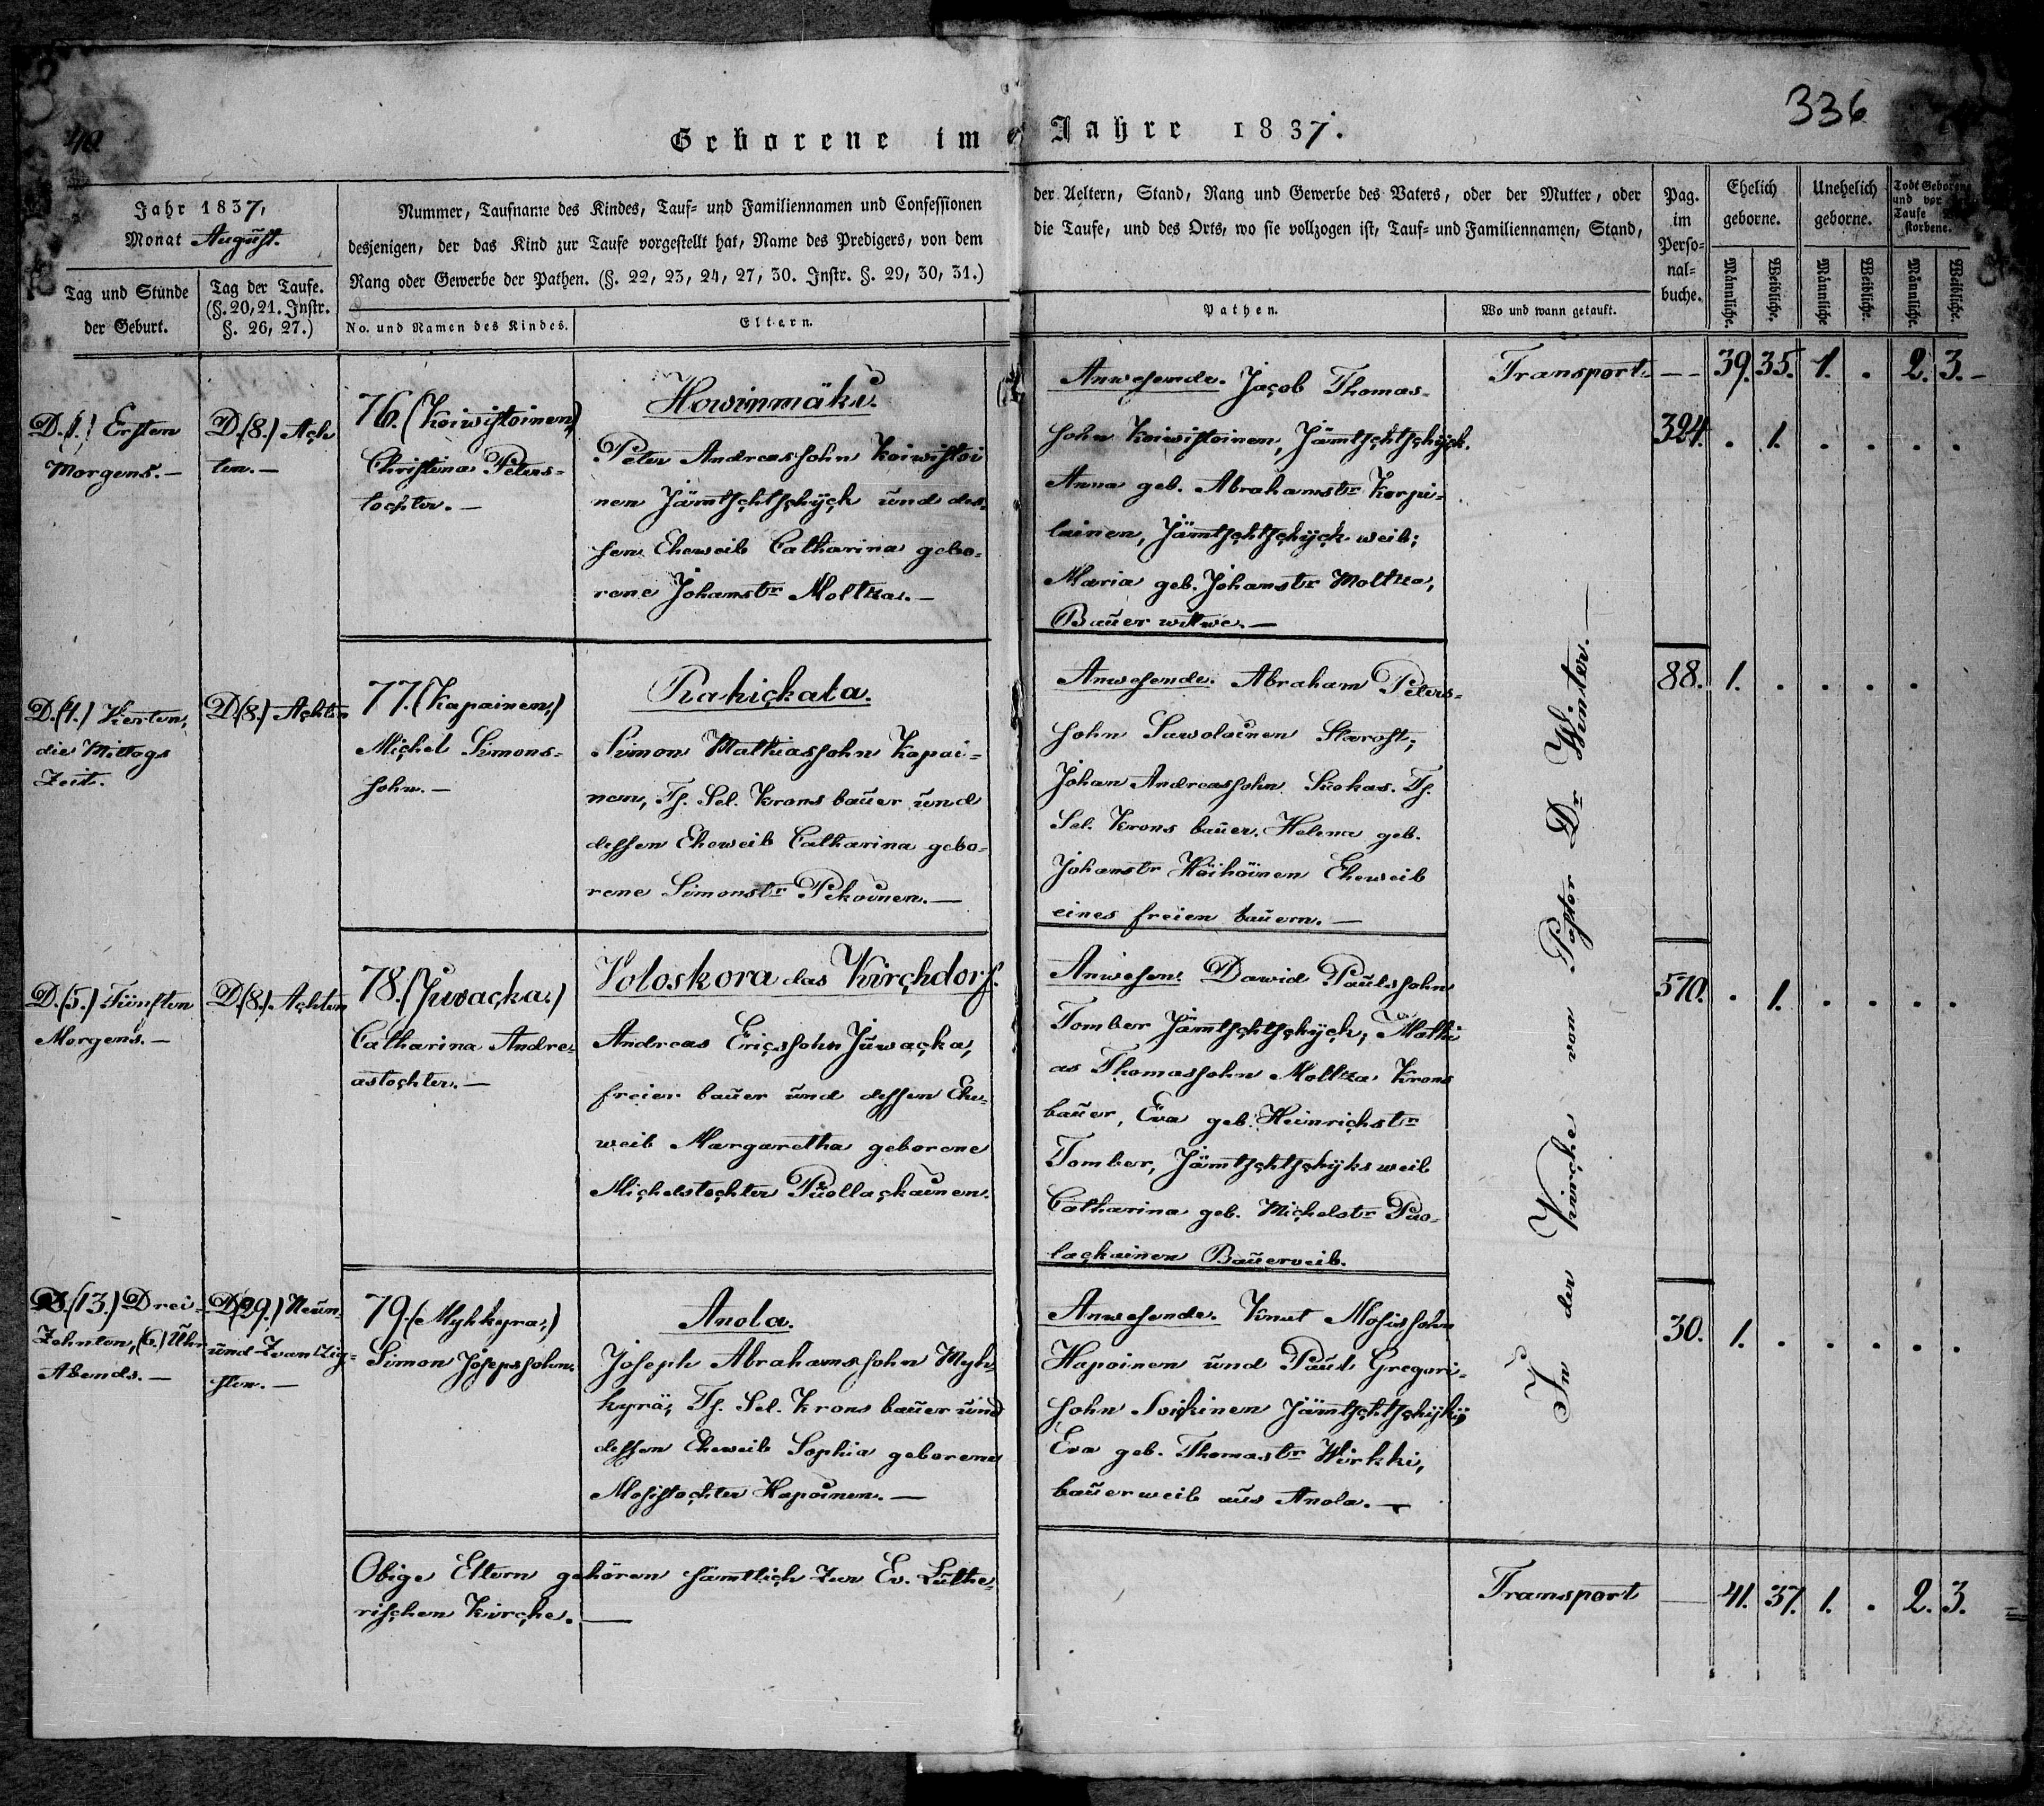 40
336
Geborene im Jahre 1837.
Jahr 1837,
Monat August.
Tag und Stunde
der Geburt.
Tag der Taufe.
(§. 20, 21. Instr.
§. 26, 27.)
Nummer, Taufname des Kindes, Tauf- und Familiennamen und Confessionen
desjenigen, der das Kind zur Taufe vorgestellt hat, Name des Predigers, von dem
Rang oder Gewerbe der Pathen. (§. 22, 23, 24, 27, 30. Instr. §. 29, 30, 31.)
No. und Namen des Kindes.
Eltern.
der Aeltern, Stand, Rang und Gewerbe des Vaters, oder der Mutter, oder
die Taufe, und des Orts, wo sie vollzogen ist, Tauf- und Familiennamen, Stand,
Pathen.
Wo und wann getauft.
Pag.
im
Perso-
nal-
buche.
Ehelich
geborne.
Unehelich
geborne.
Todt Geborene
und vor
Taufe
storbene.
Männliche.
Weibliche.
Männliche
Weibliche.
Männliche.
Weibliche.
Transport. — 39. 35. 1. . 2. 3. –
D. (1.) Ersten
Morgens. —
D. (8.) Ach
ten. —
76. (Koiwistoinen)
Christina Peters-
tochter. —
Howinmäki.
Peter Andreassohn Koiwistoi
nen Jämtschtschyck und des-
sen Eheweib Catharina gebo-
rene Johanstr Moltza. —
Anwesende. Jacob Thomas-
sohn Koiwistoinen, Jämtschtschyck.
Anna geb. Abrahamstr Korpi-
lainen, Jämtschtschyck weib;
Maria geb. Johanstr Moltza,
Bauer witwe. —
324. . 1. . . . .
D. (4.) Vierten,
die Mittags
Zeit.
D. (8.) Achten
77. (Kapainen.)
Michel Simons-
sohn. —
Rahickala.
Simon Mathiassohn Kapai-
nen, Ts. Sel. Krons bauer und
dessen Eheweib Catharina gebo-
rene Simonstr Pikoinen. —
Anwesende. Abraham Peters-
sohn Sawolainen Starost;
Johan Andreassohn Suokas. Ts.
Sel. Krons bauer. Helena geb.
Johanstr Höihöinen Eheweib
eines freien bauern. —
88. 1. . . . .
D. (5.) Fünften
Morgens. —
D. (8.) Achten
78. (Juwacka.)
Catharina Andre-
astochter. —
Voloskora das Kirchdorf.
Andreas Ericssohn Juwacka,
freier bauer und dessen Ehe-
weib Margaretha geborene
Michelstochter Puollackainen.
Anwesen. Dawid Paulssohn
Tomber Jämtschtschyck; Mathi
as Thomassohn Moltza Krons
bauer, Eva geb. Heinrichstr
Tomber, Jämtschtschyks weib
Catharina geb. Michelstr Puo-
lackainen Bauerweib.
570. . 1. . . . .
(13.) Drei-
Zehnten, (6.) Uhr
Abends. —
D. (29.) Neun-
und Zwanzig-
sten. —
79. (Mykkyra.)
Simon Josepssohn.
Anola.
Joseph Abrahamssohn Myk-
kyrä, Ts. Sel. Krons bauer und
dessen Eheweib Sophia geborene
Mosistochter Hapoinen. —
Anwesende. Knut Mosissohn
Hapoinen und Paul Gregori-
sohn Soickinen Jämtschtschyky
Eva geb. Thomastr Wirkki,
bauerweib aus Anola. —
30. 1. . . . . .
In der Kirche von Pastor Dr Winter. —
Obige Eltern gehören sämtlich zur Ev. Luthe-
rischen Kirche. —
Transport — 41. 37. 1. . 2. 3.